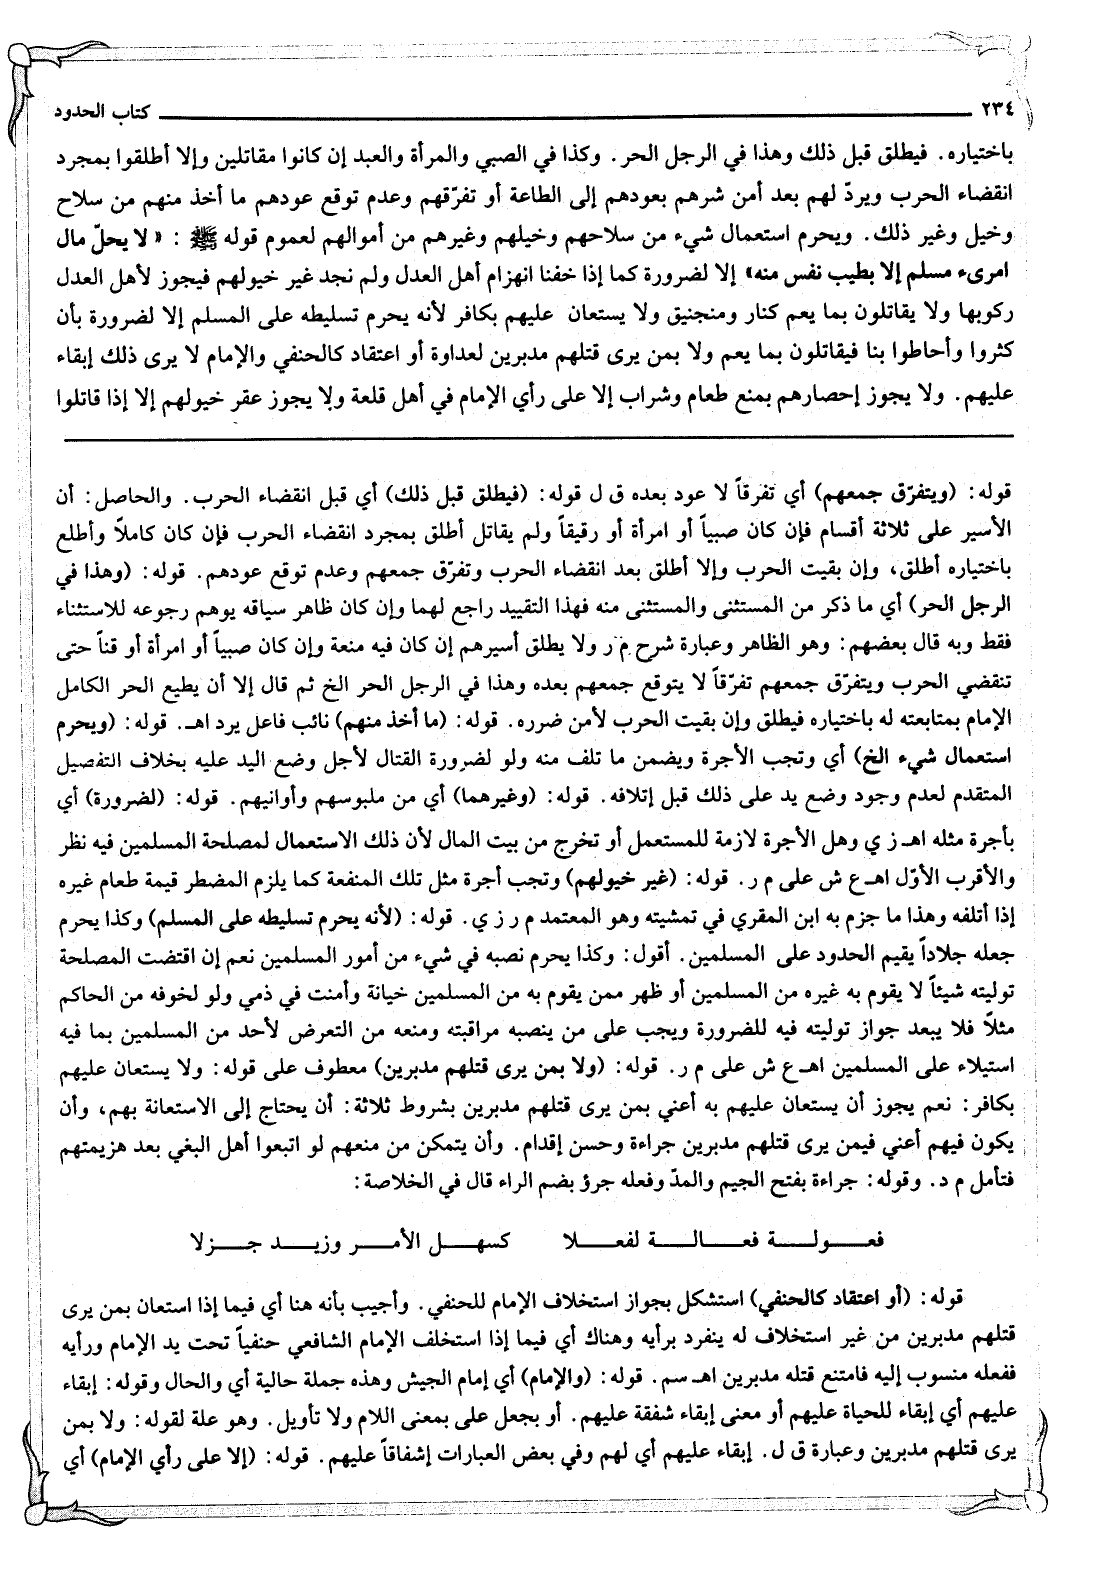 ٢٣٤ كتاب الحدود
باختياره. فيطلق قبل ذلك وهذا في الرجل الحر. وكذا في الصبي والمرأة والعبد إن كانوا مقاتلين وإلا أطلقوا بمجرد
انقضاء الحرب ويردّ لهم بعد أمن شرهم بعودهم إلى الطاعة أو تفرّقهم وعدم توقع عودهم ما أخذ منهم من سلاح
وخيل وغير ذلك. ويحرم استعمال شيء من سلاحهم وخيلهم وغيرهم من أموالهم لعموم قوله ﷺ : « لا يحلّ مال
امرىء مسلم إلا بطيب نفس منه» إلا لضرورة كما إذا خفنا انهزام أهل العدل ولم نجد غير خيولهم فيجوز لأهل العدل
ركوبها ولا يقاتلون بما يعم كنار ومنجنيق ولا يستعان عليهم بكافر لأنه يحرم تسليطه على المسلم إلا لضرورة بأن
كثروا وأحاطوا بنا فيقاتلون بما يعم ولا بمن يرى قتلهم مدبرين لعداوة أو اعتقاد كالحنفي والإمام لا يرى ذلك إبقاء
عليهم. ولا يجوز إحصارهم بمنع طعام وشراب إلا على رأي الإمام في أهل قلعة ولا يجوز عقر خيولهم إلا إذا قاتلوا
قوله: (ويتفرّق جمعهم) أي تفرقاً لا عود بعده ق ل قوله: (فيطلق قبل ذلك) أي قبل انقضاء الحرب. والحاصل: أن
الأسير على ثلاثة أقسام فإن كان صبياً أو امرأة أو رقيقاً ولم يقاتل أطلق بمجرد انقضاء الحرب فإن كان كاملاً وأطلع
باختياره أطلق، وإن بقيت الحرب وإلا أطلق بعد انقضاء الحرب وتفرّق جمعهم وعدم توقع عودهم. قوله: (وهذا في
الرجل الحر) أي ما ذكر من المستثنى والمستثنى منه فهذا التقييد راجع لهما وإن كان ظاهر سياقه يوهم رجوعه للاستثناء
فقط وبه قال بعضهم: وهو الظاهر وعبارة شرح م ر ولا يطلق أسيرهم إن كان فيه منعة وإن كان صبياً أو امرأة أو قناً حتى
تنقضي الحرب ويتفرّق جمعهم تفرّقاً لا يتوقع جمعهم بعده وهذا في الرجل الحر الخ ثم قال إلا أن يطيع الحر الكامل
الإمام بمتابعته له باختياره فيطلق وإن بقيت الحرب لأمن ضرره. قوله: (ما أخذ منهم) نائب فاعل يرد اهـ. قوله: (ويحرم
استعمال شيء الخ) أي وتجب الأجرة ويضمن ما تلف منه ولو لضرورة القتال لأجل وضع اليد عليه بخلاف التفصيل
المتقدم لعدم وجود وضع يد على ذلك قبل إتلافه. قوله: (وغيرهما) أي من ملبوسهم وأوانيهم. قوله: (لضرورة) أي
بأجرة مثله اهـ ز ي وهل الأجرة لازمة للمستعمل أو تخرج من بيت المال لأن ذلك الاستعمال لمصلحة المسلمين فيه نظر
والأقرب الأوّل اهـ ع ش على م ر. قوله: (غير خيولهم) وتجب أجرة مثل تلك المنفعة كما يلزم المضطر قيمة طعام غيره
إذا أتلفه وهذا ما جزم به ابن المقري في تمشيته وهو المعتمد م ر ز ي. قوله: (لأنه يحرم تسليطه على المسلم) وكذا يحرم
جعله جلاداً يقيم الحدود على المسلمين. أقول: وكذا يحرم نصبه في شيء من أمور المسلمين نعم إن اقتضت المصلحة
توليته شيئاً لا يقوم به غيره من المسلمين أو ظهر ممن يقوم به من المسلمين خيانة وأمنت في ذمي ولو لخوفه من الحاكم
مثلاً فلا يبعد جواز توليته فيه للضرورة ويجب على من ينصبه مراقبته ومنعه من التعرض لأحد من المسلمين بما فيه
استيلاء على المسلمين اهـ ع ش على م ر. قوله: (ولا بمن يرى قتلهم مدبرين) معطوف على قوله: ولا يستعان عليهم
بكافر: نعم يجوز أن يستعان عليهم به أعني بمن يرى قتلهم مدبرين بشروط ثلاثة: أن يحتاج إلى الاستعانة بهم، وأن
يكون فيهم أعني فيمن يرى قتلهم مدبرين جراءة وحسن إقدام. وأن يتمكن من منعهم لو اتبعوا أهل البغي بعد هزيمتهم
فتأمل م د. وقوله: جراءة بفتح الجيم والمدّ وفعله جرؤ بضم الراء قال في الخلاصة:
فعـولـة فعـالـة لفعـلا كسهـل الأمـر وزيـد جـزلا
قوله: (أو اعتقاد كالحنفي) استشكل بجواز استخلاف الإمام للحنفي. وأجيب بأنه هنا أي فيما إذا استعان بمن يرى
قتلهم مدبرين من غير استخلاف له ينفرد برأيه وهناك أي فيما إذا استخلف الإمام الشافعي حنفياً تحت يد الإمام ورأيه
ففعله منسوب إليه فامتنع قتله مدبرين اهـ سم. قوله: (والإمام) أي إمام الجيش وهذه جملة حالية أي والحال وقوله: إبقاء
عليهم أي إبقاء للحياة عليهم أو معنى إبقاء شفقة عليهم. أو بجعل على بمعنى اللام ولا تأويل. وهو علة لقوله: ولا بمن
يرى قتلهم مدبرين وعبارة ق ل. إبقاء عليهم أي لهم وفي بعض العبارات إشفاقاً عليهم. قوله: (إلا على رأي الإمام) أي